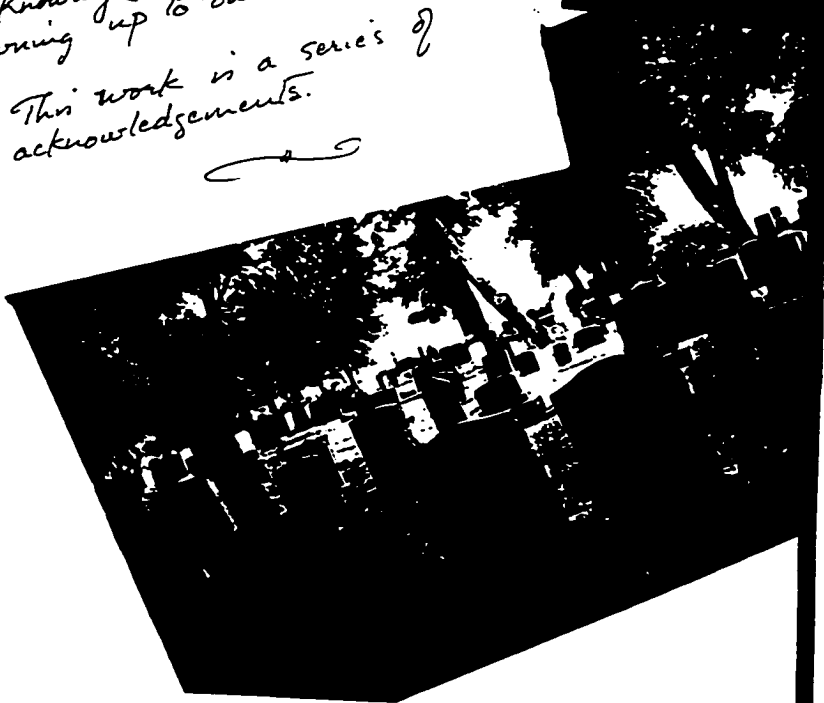 up to
This work is a series of
acknowledgements.